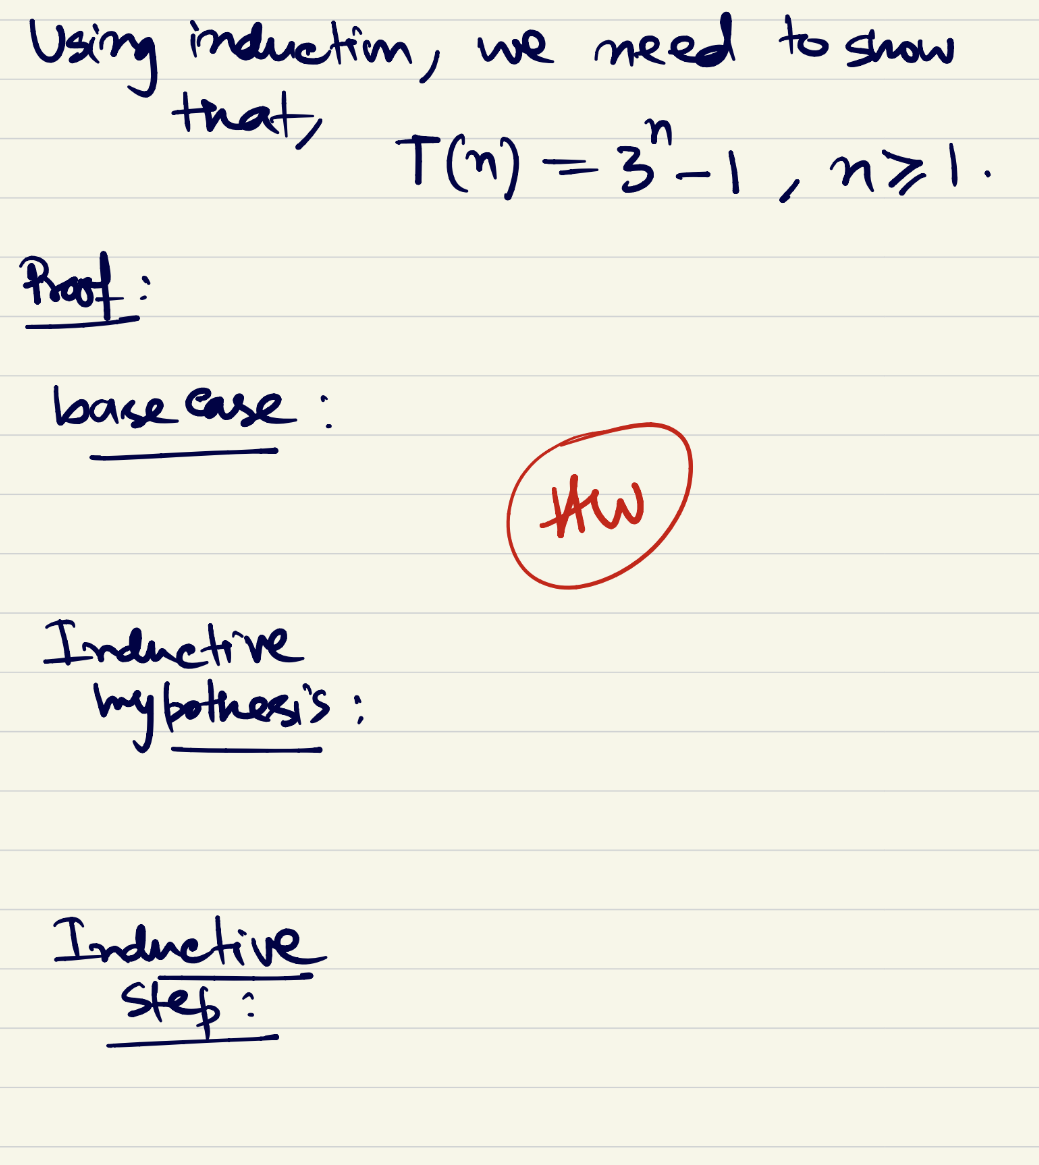 Using induction, we need to show
that,
T(n) = 3ⁿ - 1 , n ⩾ 1.
Proof:
base case:
HW
Inductive
hypothesis:
Inductive
step: